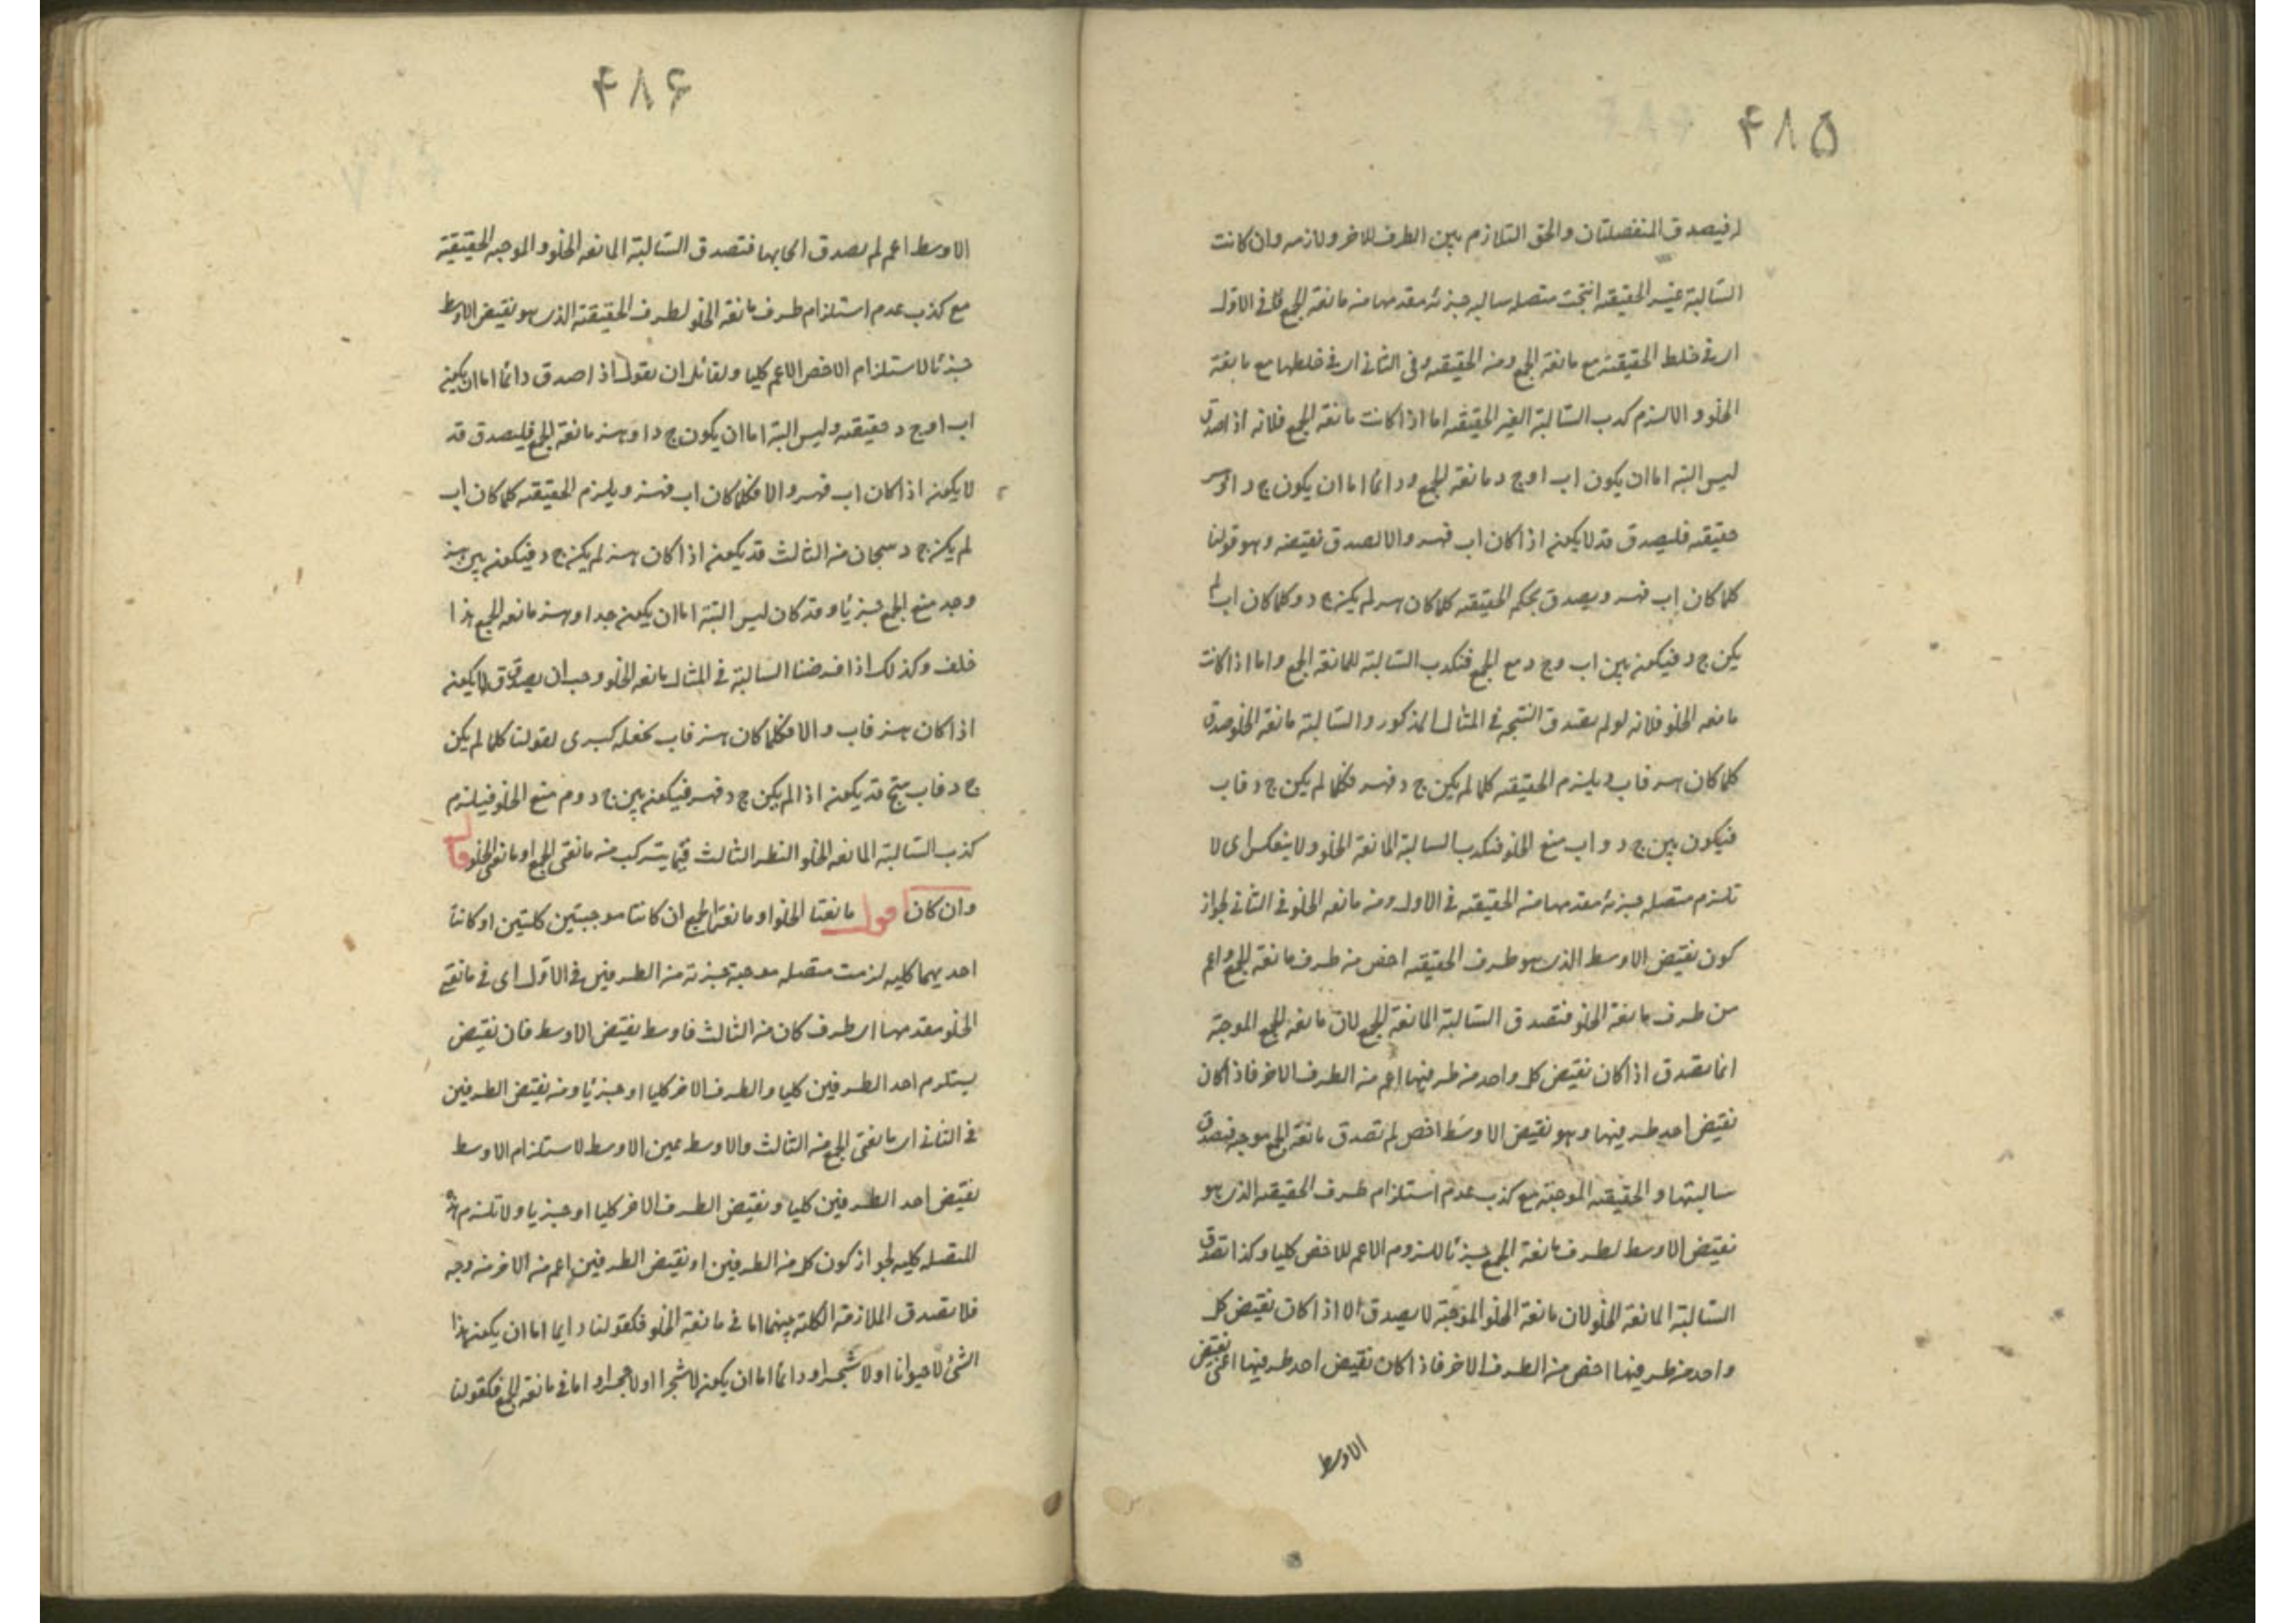 ۴۸۵
فيصدق المنفصلتان والحق التلازم بين الطرف الاخر ولازمه وان كانت
السالبة غير الحقيقه انتجت متصله سالبه جزئه مقدمها من مانعة الجمع فى الاول
اى فى خلط الحقيقة مع مانعة الجمع ومن الحقيقه وفى الثانى اى فى خلطها مع مانعة
الخلو والا لزم كذب السالبة الغير الحقيقه اما اذا كانت مانعة الجمع فلانه اذا صدق
ليس البتة اما ان يكون اب او ج د مانعة الجمع ودائما اما ان يكون ج د او هز
حقيقه فليصدق قد لا يكون اذا كان اب فهز والا لصدق نقيضه وهو قولنا
كلما كان اب فهز ويصدق بحكم الحقيقه كلما كان هز لم يكن ج د وكلما كان اب لم
يكن ج د فيكون بين اب وج د منع الجمع فتكذب السالبة المانعة الجمع واما اذا كانت
مانعه الخلو فلانه لو لم يصدق النتيجه فى المثال المذكور والسالبة مانعة الخلو صدق
كلما كان هز فاب ويلزم الحقيقه كلما لم يكن ج د فهز فكلما لم يكن ج د فاب
فيكون بين ج د واب منع الخلو فتكذب السالبة المانعة الخلو ولا ينعكس اى لا
تلزم متصله جزئه مقدمها من الحقيقه فى الاول ومن مانعه الخلو فى الثانى لجواز
كون نقيض الاوسط الذى هو طرف الحقيقه اخص من طرف مانعة الجمع واعم
من طرف مانعة الخلو فتصدق السالبة المانعة الجمع لان مانعه الجمع الموجبة
انما تصدق اذا كان نقيض كل واحد من طرفيها اعم من الطرف الاخر فاذا كان
نقيض احد طرفيها وهو نقيض الاوسط اخص لم تصدق مانعة الجمع موجبه فتصدق
سالبتها والحقيقه الموجبة مع كذب عدم استلزام طرف الحقيقه الذى هو
نقيض الاوسط لطرف مانعة الجمع جزئا للزوم الاعم للاخص كليا وكذا تصدق
السالبة المانعة الخلو لان مانعة الخلو الموجبة لا يصدق الا اذا كان نقيض كل
واحد من طرفيها اخص من الطرف الاخر فاذا كان نقيض احد طرفيها اعنى نقيض
الاوسط
۴۸۶
الاوسط اعم لم يصدق ايجابها فتصدق السالبة المانعه الخلو والموجبه الحقيقية
مع كذب عدم استلزام طرف مانعة الخلو لطرف الحقيقة الذى هو نقيض الاوسط
جزئا لاستلزام الاخص الاعم كليا ولقائل ان يقول اذا صدق دائما اما ان يكون
اب او ج د حقيقه وليس البتة اما ان يكون ج د او هز مانعة الجمع فليصدق قد
لا يكون اذا كان اب فهز والا فكلما كان اب فهز ويلزم الحقيقه كلما كان اب
لم يكن ج د ينتجان من الثالث قد يكون اذا كان هز لم يكن ج د فيكون بين هز
وجد منع الجمع جزئيا وقد كان ليس البتة اما ان يكون جد او هز مانعه الجمع هذا
خلف وكذلك اذا فرضنا السالبة فى المثال مانعه الخلو وجب ان يصدق قد لا يكون
اذا كان هز فاب والا فكلما كان هز فاب نجعله كبرى لقولنا كلما لم يكن
ج د فاب ينتج قد يكون اذا لم يكن ج د فهز فيكون بين ج د وهز منع الخلو فيلزم
كذب السالبة المانعه الخلو النظر الثالث فيما يتركب من مانعتى الجمع او مانعتى الخلو قال
وان كان اقول مانعتا الخلو او مانعتا الجمع ان كانتا موجبتين كليتين او كانتا
احديهما كليه لزمت متصله موجبة جزئه من الطرفين فى الاول اى فى مانعتى
الخلو مقدمها اى طرف كان من الثالث فاوسط نقيض الاوسط فان نقيض
يستلزم احد الطرفين كليا والطرف الاخر كليا او جزئيا ومن نقيض الطرفين
فى الثانى اى مانعتى الجمع من الثالث والاوسط عين الاوسط لاستلزام الاوسط
نقيض احد الطرفين كليا ونقيض الطرف الاخر كليا او جزئيا ولا تلزم هذه
المتصله كليه لجواز كون كل من الطرفين او نقيض الطرفين اعم من الاخر من وجه
فلا تصدق الملازمة الكلية بينهما اما فى مانعة الخلو فكقولنا دايما اما ان يكون هذا
الشئ لا حيوانا او لا شجرا ودائما اما ان يكون لا شجرا او لا حجرا واما فى مانعة الجمع فكقولنا